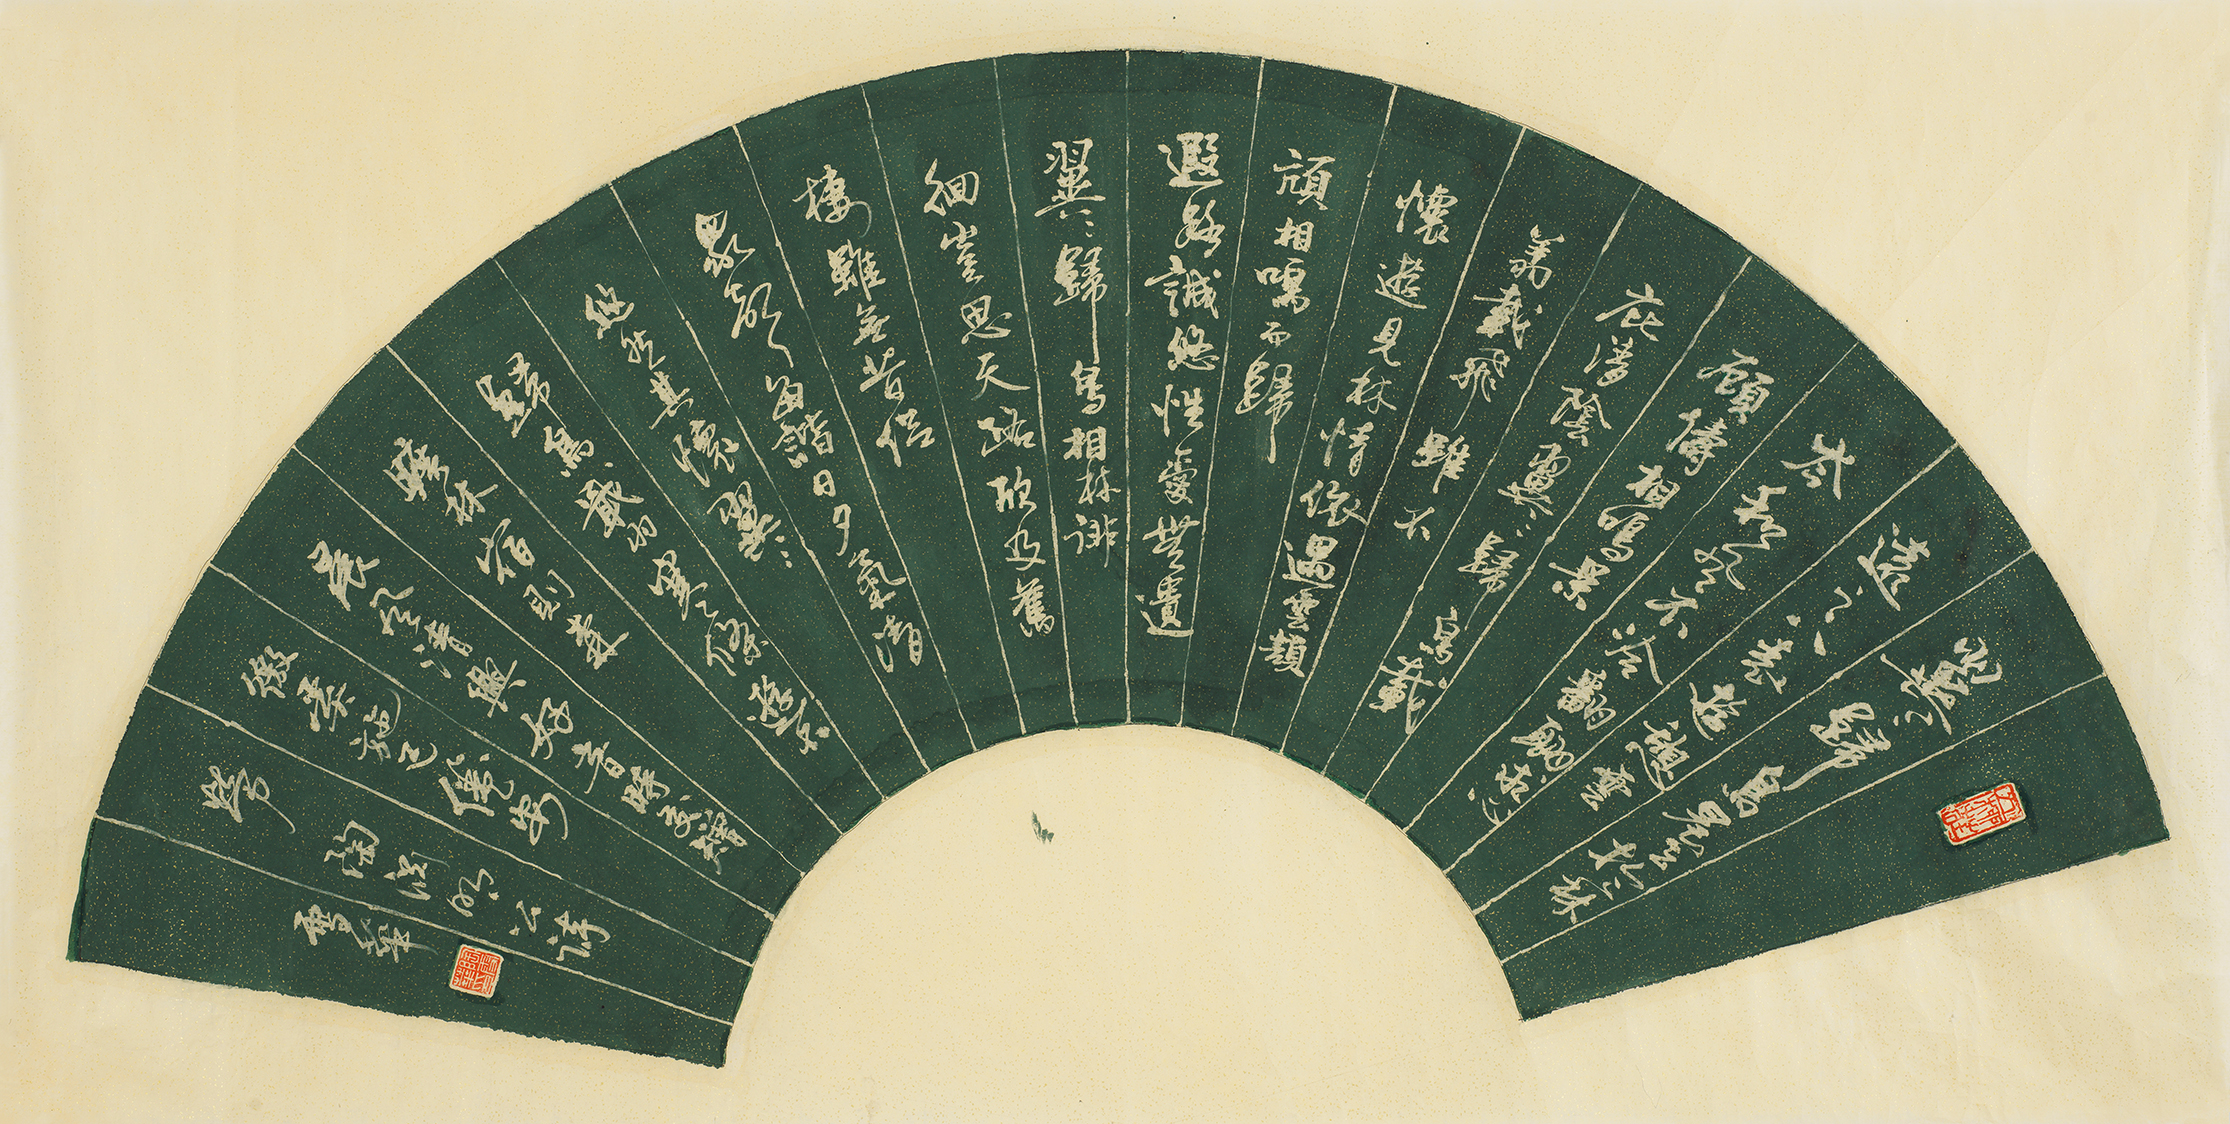 翼〻歸鳥晨去於林
遠之八表近憩雲
岑和風不洽翻翮求心
顧儔相鳴景
庇清陰翼〻歸鳥載
翔載飛雖不
懷遊見林情依遇雲頡
頏相鳴而歸
遐路誠悠性愛無遺
翼〻歸鳥相林徘
徊豈思天路欣及舊
棲雖無昔侶
眾聲每諧日夕氣清
悠然其懷翼〻
歸鳥戢羽寒條遊不
曠林宿則標
晨風清興好音時交矰
繳奚施已卷安
勞 陶淵明公詩